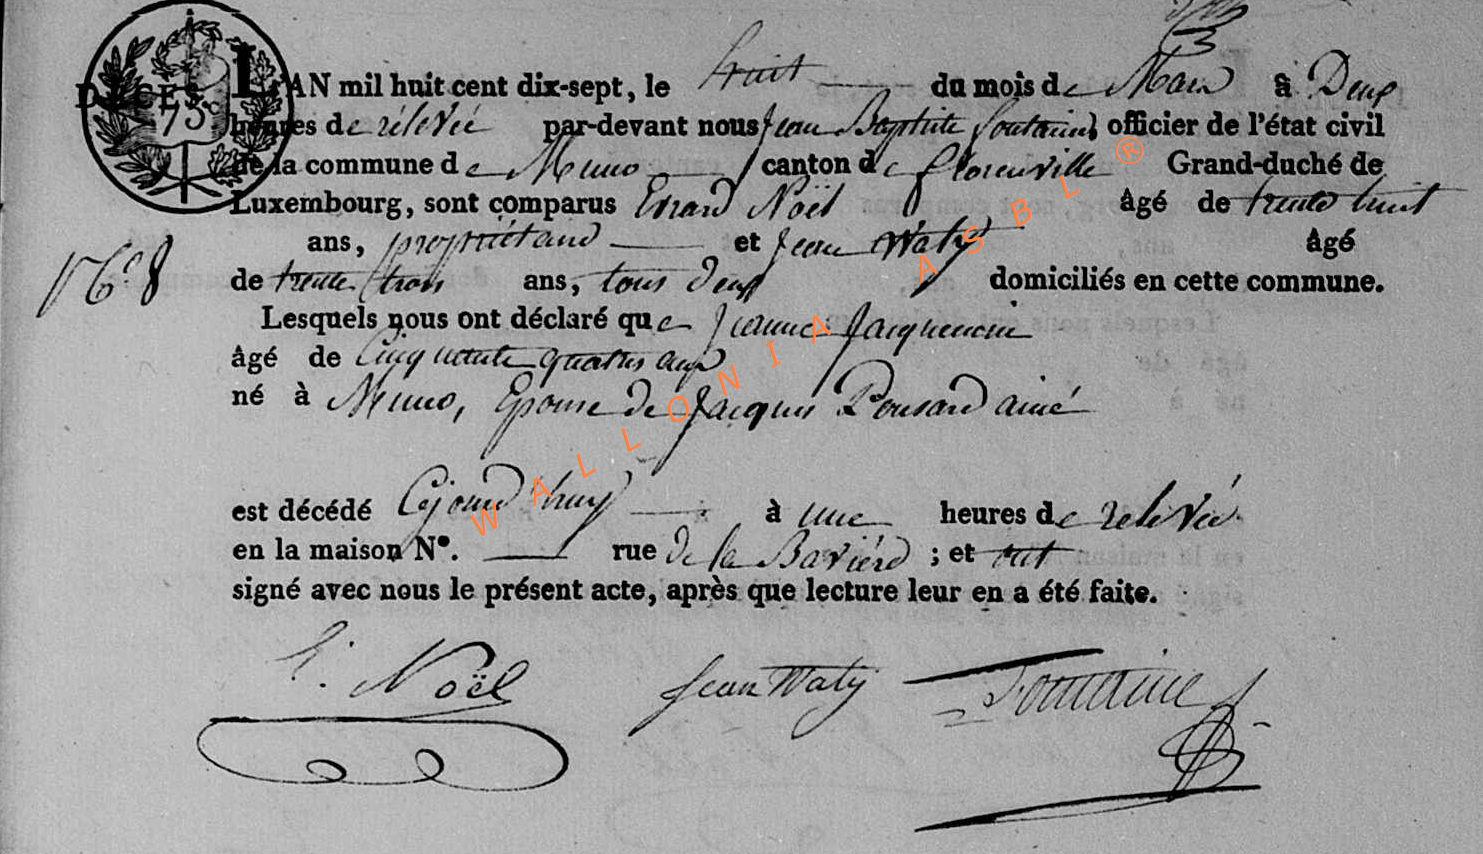 DÉCÈS.
75
L'AN mil huit cent dix-sept, le huit du mois de Mars à Deux
heures de rélevée par-devant nous Jean Baptiste fontaine officier de l'état civil
de la commune de Muno canton de florenville Grand-duché de
Luxembourg, sont comparus Erard Noël âgé de trente huit
ans, propriétaire et Jean Waty âgé
N.° 8
de trente trois ans, tous deux domiciliés en cette commune.
Lesquels nous ont déclaré que Jeanne Jacquemin
âgé de Cinquante quatre ans
né à Muno, Epouse de Jacques Ponsard ainé
est décédé Cejourd'huy à une heures de relevée
en la maison N°. rue de la Baviére ; et ont
signé avec nous le présent acte, après que lecture leur en a été faite.
E. Noël Jean Waty Fontaine
WALLONIA ASBL ®